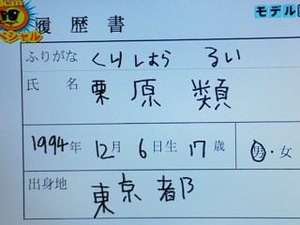 モデル
スペシャル
履歴書
ふりがな くりはら るい
氏 名 栗原 類
1994年 12月 6日生 17歳 男・女
出身地 東京都